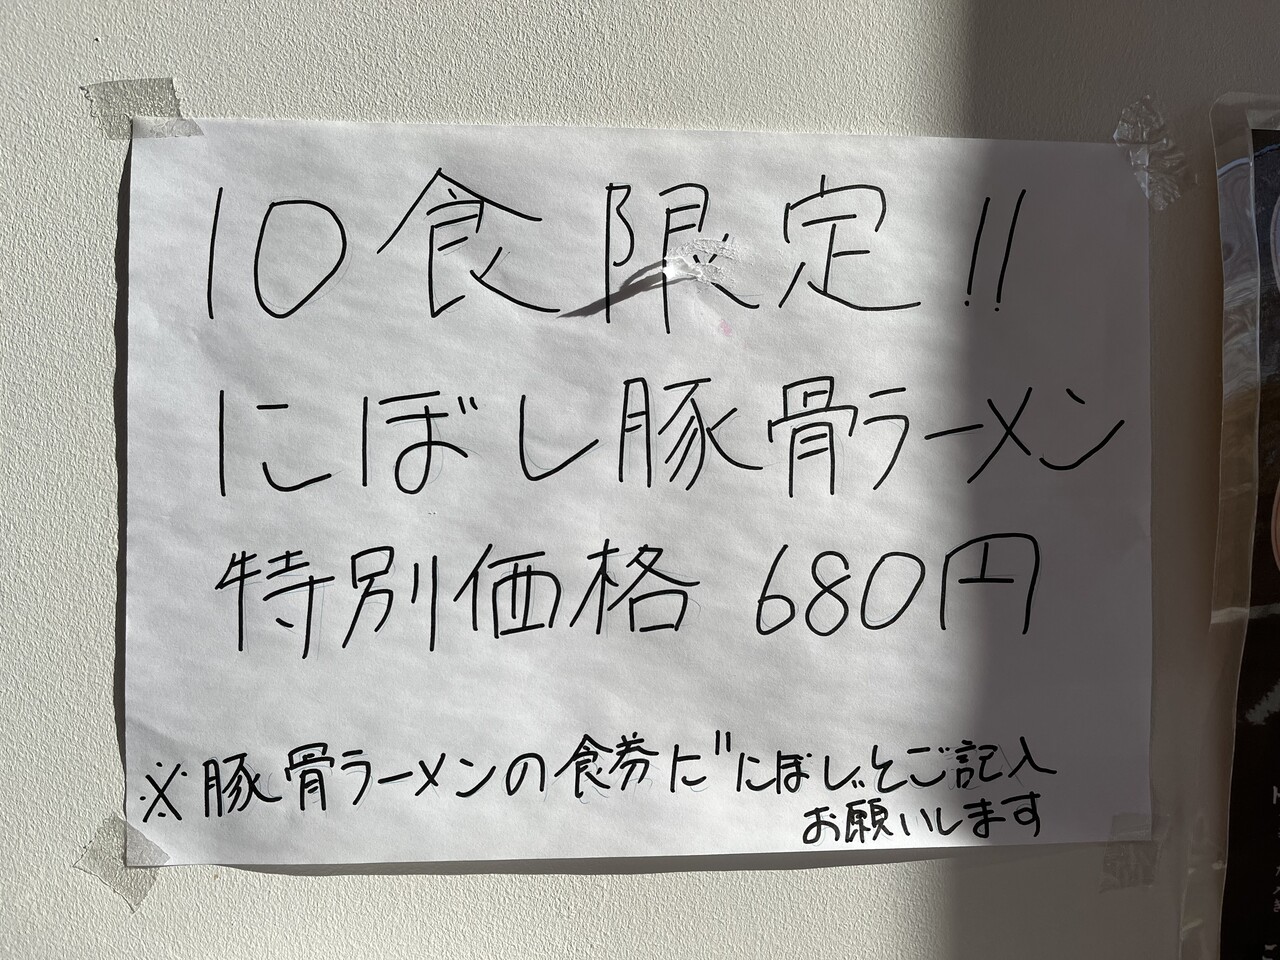 10食限定!!
にぼし豚骨ラーメン
特別価格 680円
※豚骨ラーメンの食券に"にぼし"とご記入
お願いします